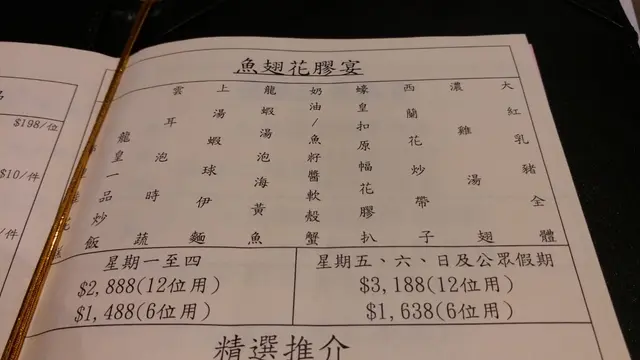 魚翅花膠宴
大紅乳豬全體
濃雞湯翅
西蘭花炒帶子
蠔皇扣原幅花膠扒
奶油/魚籽醬軟殼蟹
龍蝦湯泡海黃魚
上湯蝦球伊麵
雲耳泡時蔬
龍皇一品炒飯
星期一至四
$2,888(12位用)
$1,488(6位用)
星期五、六、日及公眾假期
$3,188(12位用)
$1,638(6位用)
精選推介
$198/位
$10/件
/件